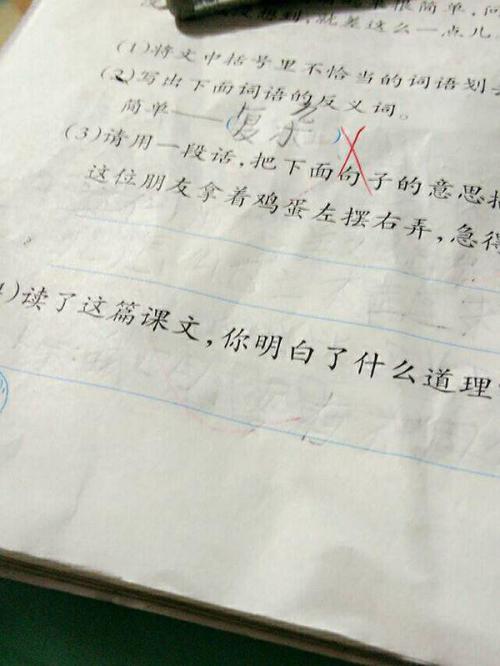 很简单，问
想到，就差这么一点儿
(1)将文中括号里不恰当的词语划去
(2)写出下面词语的反义词。
简单——(复杂)
(3)请用一段话，把下面句子的意思
这位朋友拿着鸡蛋左摆右弄，急得
)读了这篇课文，你明白了什么道理